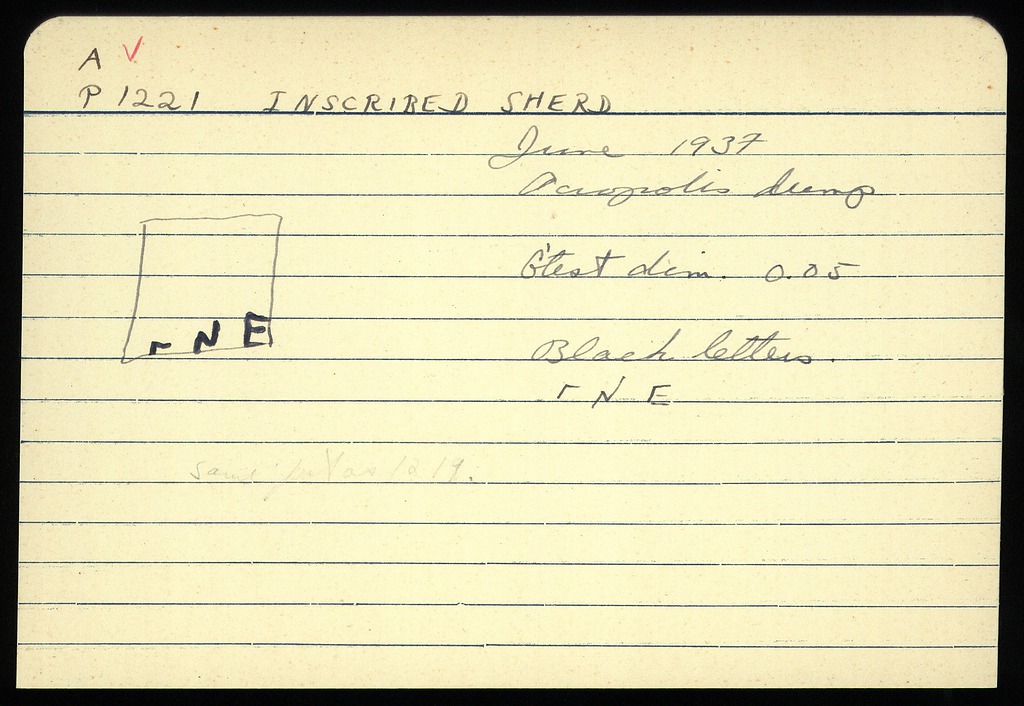 A √
P 1221 INSCRIBED SHERD
June 1937
Acropolis dump
G'test dim. 0.05
Γ N E
Black letters.
Γ N E
same as 1219.